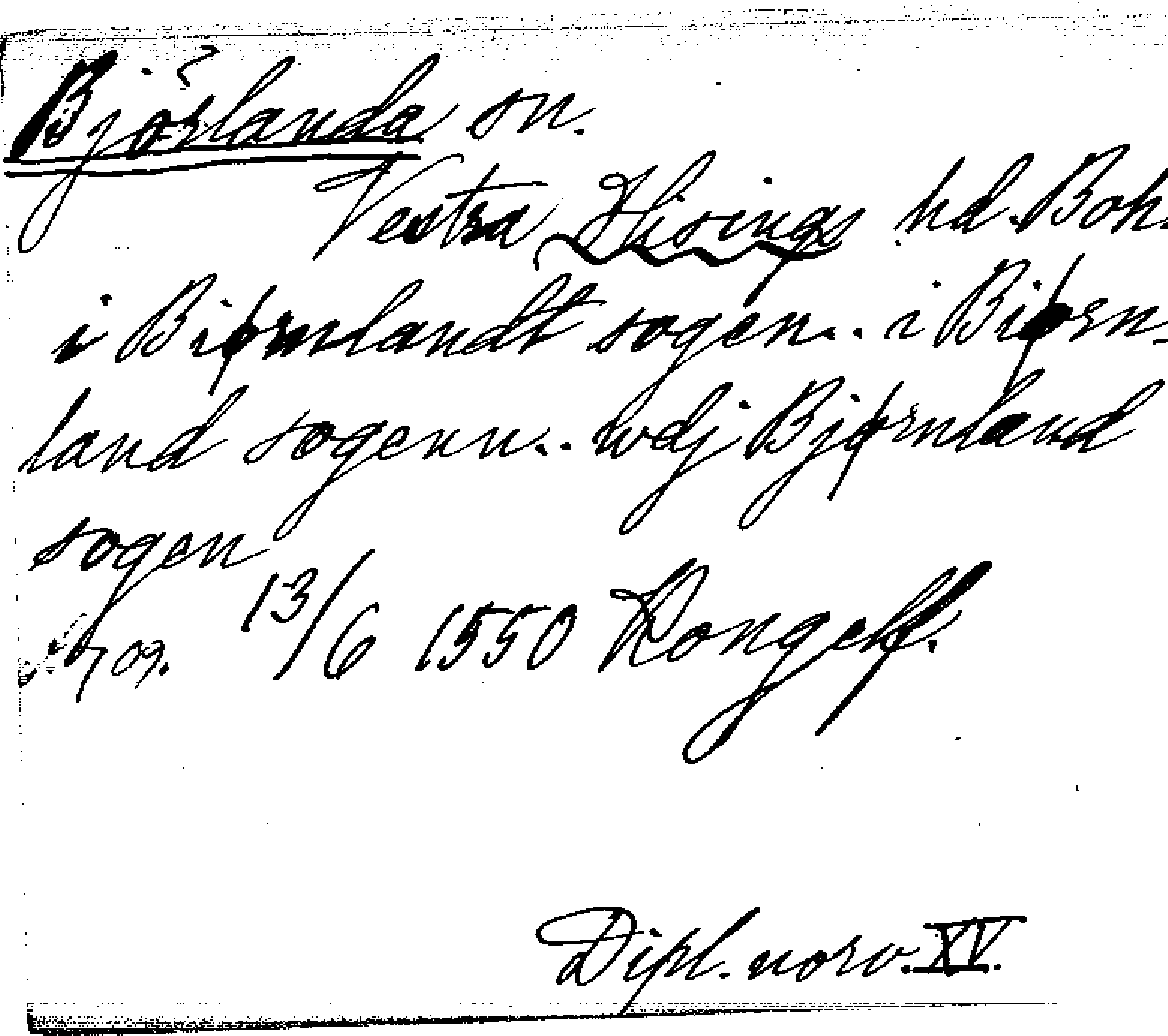 Björlanda sn.
Vestra Hisings hd. Boh.
i Biørnlandt sogen.. i Biørn-
land sogenn.. wdj Bjørnland
sogen
709. 13/6 1550 Kongelf.
Dipl. norv. XV.